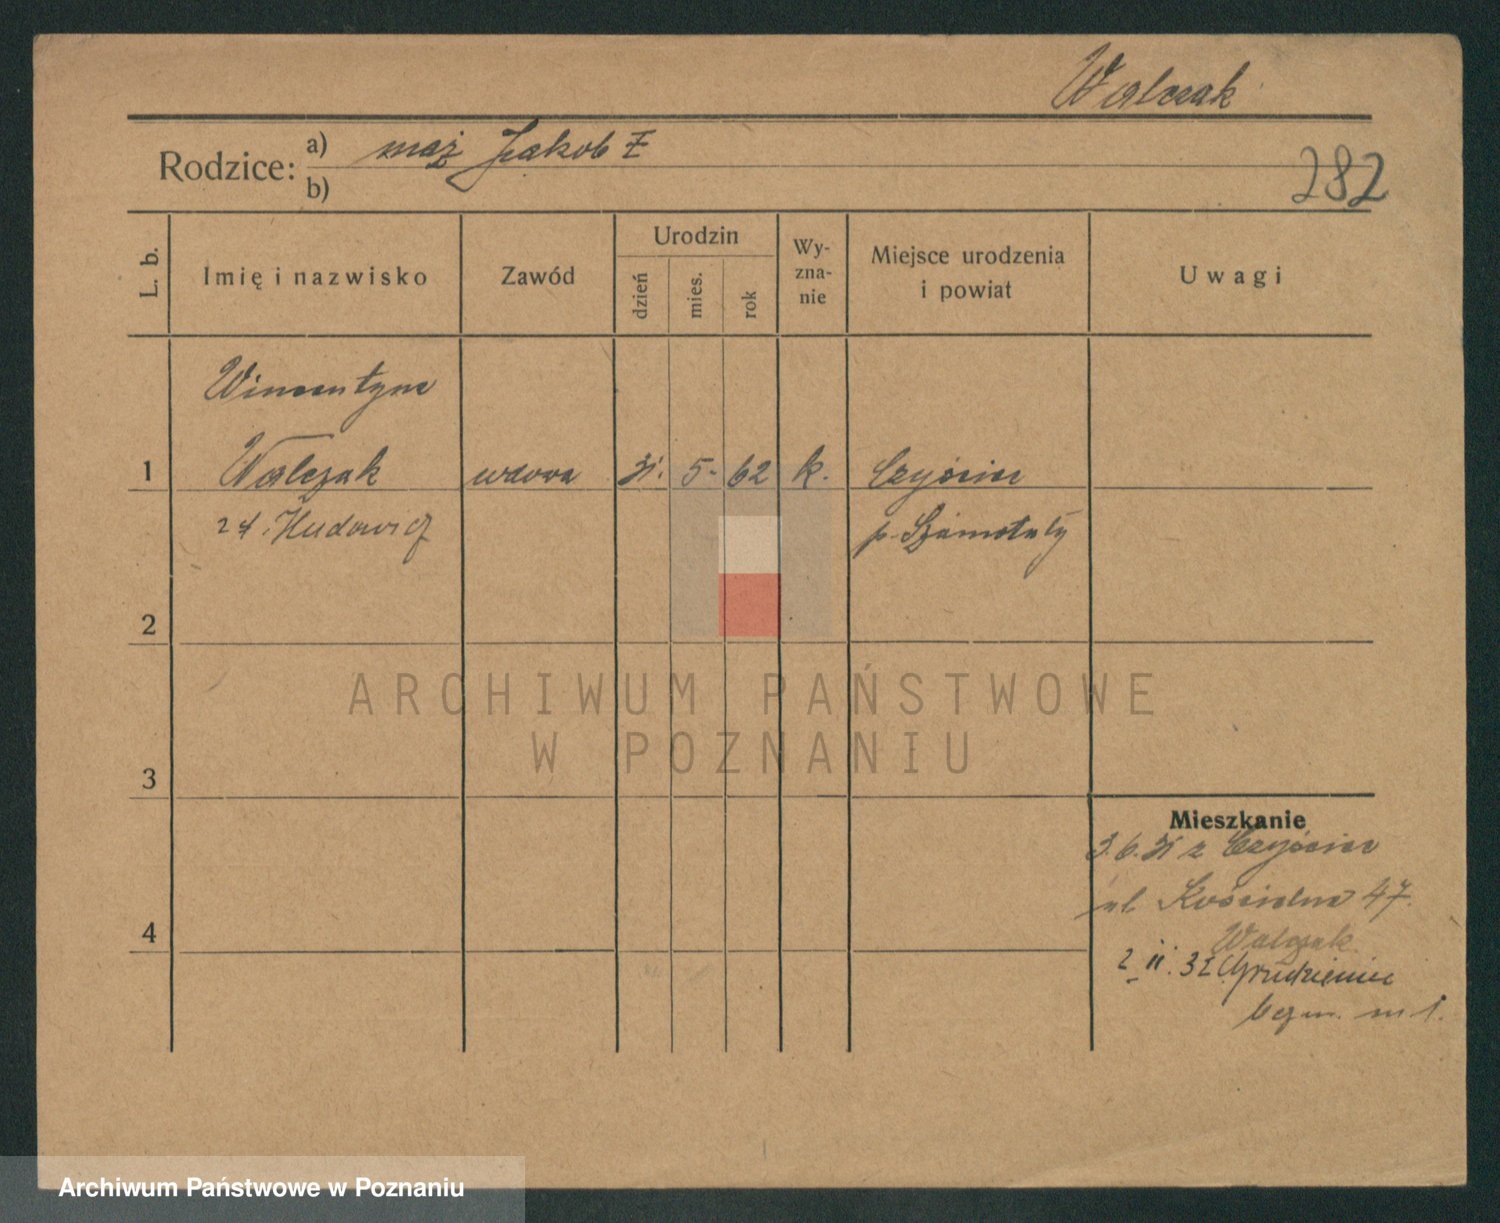 Walczak
Rodzice: a) mąż Jakob Ƶ
b)
282
L. b.
Imię i nazwisko
Zawód
Urodzin
dzień
mies.
rok
Wy-
zna-
nie
Miejsce urodzenia
i powiat
Uwagi
Wincentyna
1 Walczak wdowa 31. 5- 62 k. Czyściec
p. Szamotuły
2
3
4
Mieszkanie
3.6.31 z Czyściec
ul. Kościelna 47.
Walczak
2 11. 32 Grudzieniec
ARCHIWUM PAŃSTWOWE
W POZNANIU
Archiwum Państwowe w Poznaniu